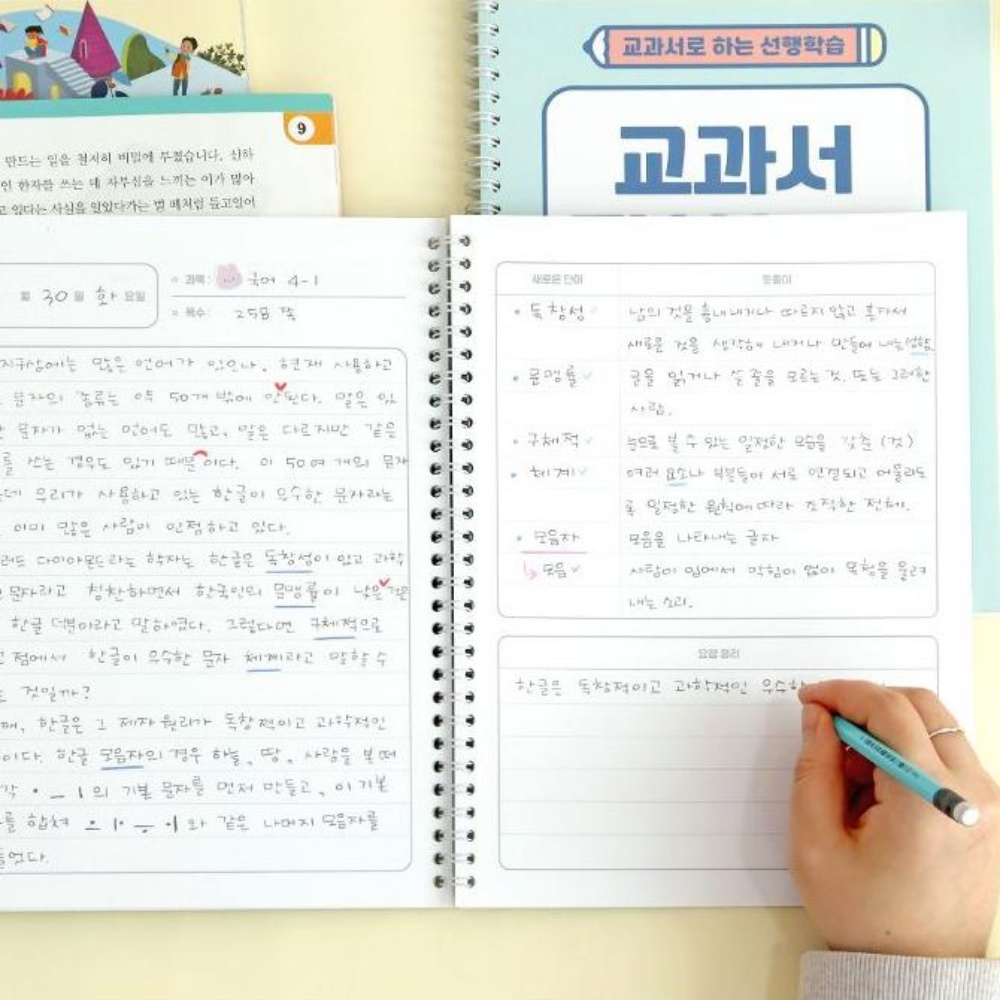 교과서로 하는 선행학습
교과서
9
만드는 일을 철저히 비밀에 부쳤습니다. 신하
인 한자를 쓰는 데 자부심을 느끼는 이가 많아
고 있다는 사실을 알았다가는 벌 떼처럼 들고일어
월 30일 화요일
과목: 국어 4-1
쪽수: 258 쪽
지구상에는 많은 언어가 있으나, 현재 사용하고
문자의 종류는 약 50개 밖에 안된다. 말은 있
문자가 없는 언어도 많고, 말은 다르지만 같은
를 쓰는 경우도 있기 때문이다. 이 50여 개의 문자
데 우리가 사용하고 있는 한글이 우수한 문자라는
이미 많은 사람이 인정하고 있다.
러드 다이아몬드라는 학자는 한글은 독창성이 있고 과학
문자라고 칭찬하면서 한국인의 문맹률이 낮은 것은
한글 덕분이라고 말하였다. 그렇다면 구체적으로
점에서 한글이 우수한 문자 체계라고 말할 수
것일까?
째, 한글은 그 제자 원리가 독창적이고 과학적인
이다. 한글 모음자의 경우 하늘, 땅, 사람을 본떠
각 • ㅡ ㅣ의 기본 문자를 먼저 만들고, 이 기본
를 합쳐 ㅗ ㅏ ㅜ ㅓ 와 같은 나머지 모음자를
들었다.
새로운 단어 뜻풀이
• 독창성 남의 것을 흉내내거나 따르지 않고 혼자서
새로운 것을 생각해 내거나 만들어 내는 성향.
• 문맹률 글을 읽거나 쓸 줄을 모르는 것. 또는 그러한
사람.
• 구체적 눈으로 볼 수 있는 일정한 모습을 갖춘 (것)
• 체계 여러 요소나 부분들이 서로 연결되고 어울리도
록 일정한 원칙에 따라 조직한 전체.
• 모음자 모음을 나타내는 글자
↳ 모음 사람이 입에서 막힘이 없이 목청을 울려
내는 소리.
요점 정리
한글은 독창적이고 과학적인 우수한